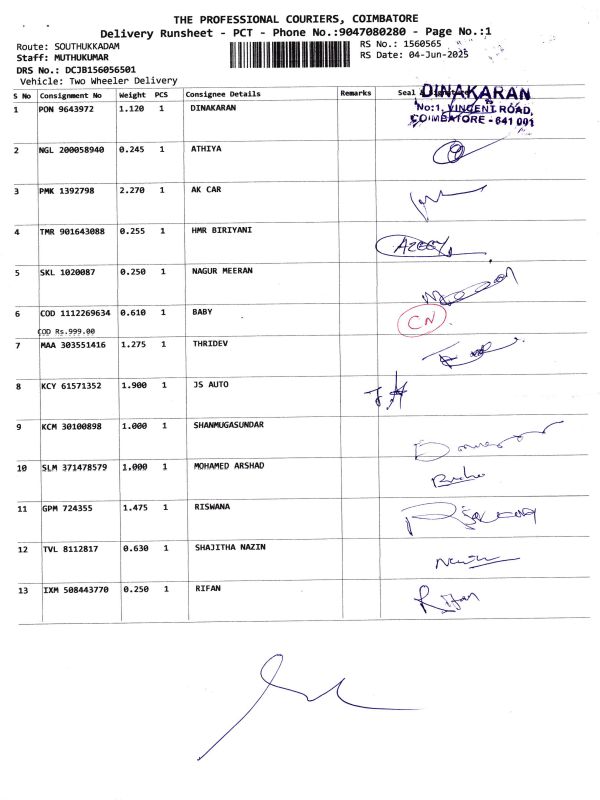 THE PROFESSIONAL COURIERS, COIMBATORE
Delivery Runsheet - PCT - Phone No.:9047080280 - Page No.:1
Route: SOUTHUKKADAM RS No.: 1560565
Staff: MUTHUKUMAR RS Date: 04-Jun-2025
DRS No.: DCJB156056501
Vehicle: Two Wheeler Delivery
S No Consignment No Weight PCS Consignee Details Remarks Seal
1 PON 9643972 1.120 1 DINAKARAN DINAKARAN
No:1, VINCENT ROAD,
COIMBATORE - 641 001
2 NGL 200058940 0.245 1 ATHIYA
3 PMK 1392798 2.270 1 AK CAR
4 TMR 901643088 0.255 1 HMR BIRIYANI AZEEZ
5 SKL 1020087 0.250 1 NAGUR MEERAN
6 COD 1112269634 0.610 1 BABY CN
COD Rs.999.00
7 MAA 303551416 1.275 1 THRIDEV
8 KCY 61571352 1.900 1 JS AUTO
9 KCM 30100898 1.000 1 SHANMUGASUNDAR
10 SLM 371478579 1.000 1 MOHAMED ARSHAD
11 GPM 724355 1.475 1 RISWANA
12 TVL 8112817 0.630 1 SHAJITHA NAZIN
13 IXM 508443770 0.250 1 RIFAN Rifan